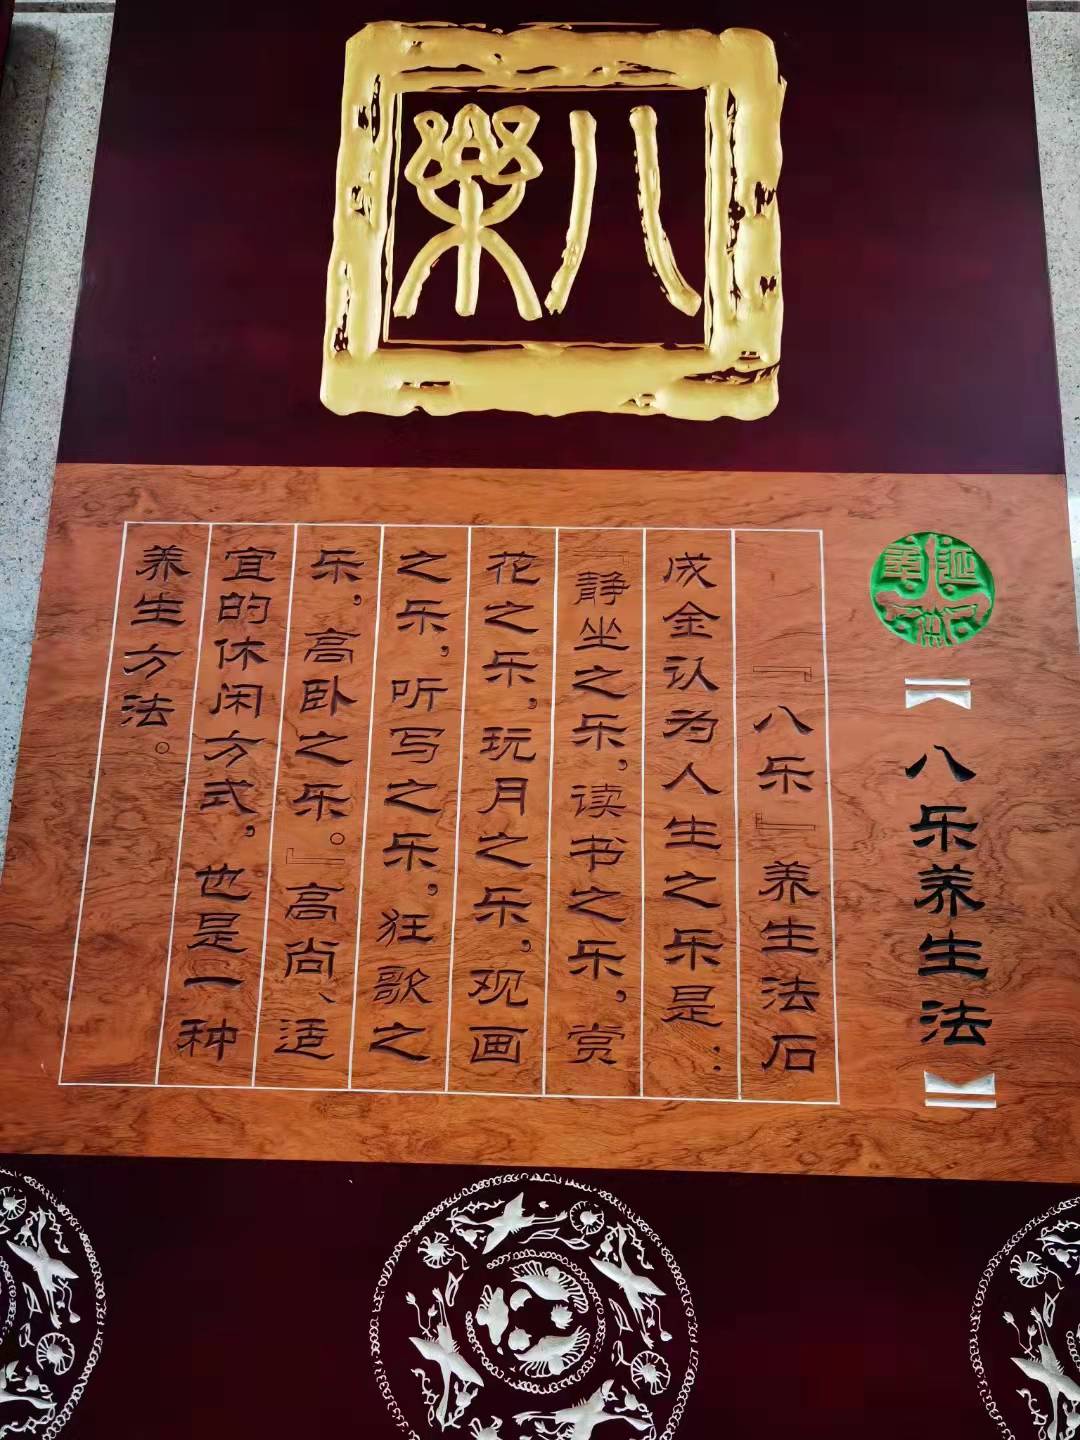 八樂
【八乐养生法】
『八乐』养生法石
成金认为人生之乐是：
『静坐之乐，读书之乐，赏
花之乐，玩月之乐，观画
之乐，听写之乐，狂歌之
乐，高卧之乐。』高尚、适
宜的休闲方式，也是一种
养生方法。